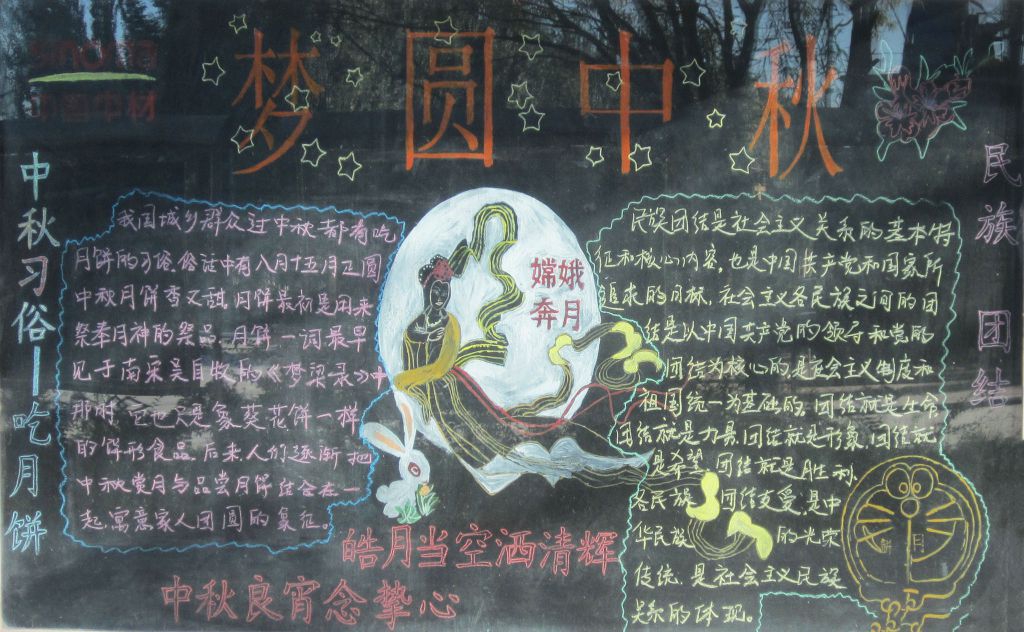 sinoma
中国中材
梦圆中秋
中秋习俗—吃月饼
我国城乡群众过中秋都有吃
月饼的习俗,俗话中有八月十五月正圆
中秋月饼香又甜,月饼最初是用来
祭奉月神的祭品,月饼一词最早
见于南宋吴自牧的《梦梁录》中
那时,它也只是象葵花饼一样
的饼形食品,后来人们逐渐把
中秋赏月与品尝月饼结合在一
起,寓意家人团圆的象征。
嫦娥
奔月
民族团结
民族团结是社会主义关系的基本特
征和核心内容,也是中国共产党和国家所
追求的目标,社会主义各民族之间的团
结是以中国共产党的领导和党的
团结为核心的,是社会主义制度和
祖国统一为基础的,团结就是生命
团结就是力量,团结就是形象,团结就
是希望,团结就是胜利,
各民族 团结友爱,是中
华民族 的光荣
传统,是社会主义民族
关系的体现。
饼 月
皓月当空洒清辉
中秋良宵念挚心